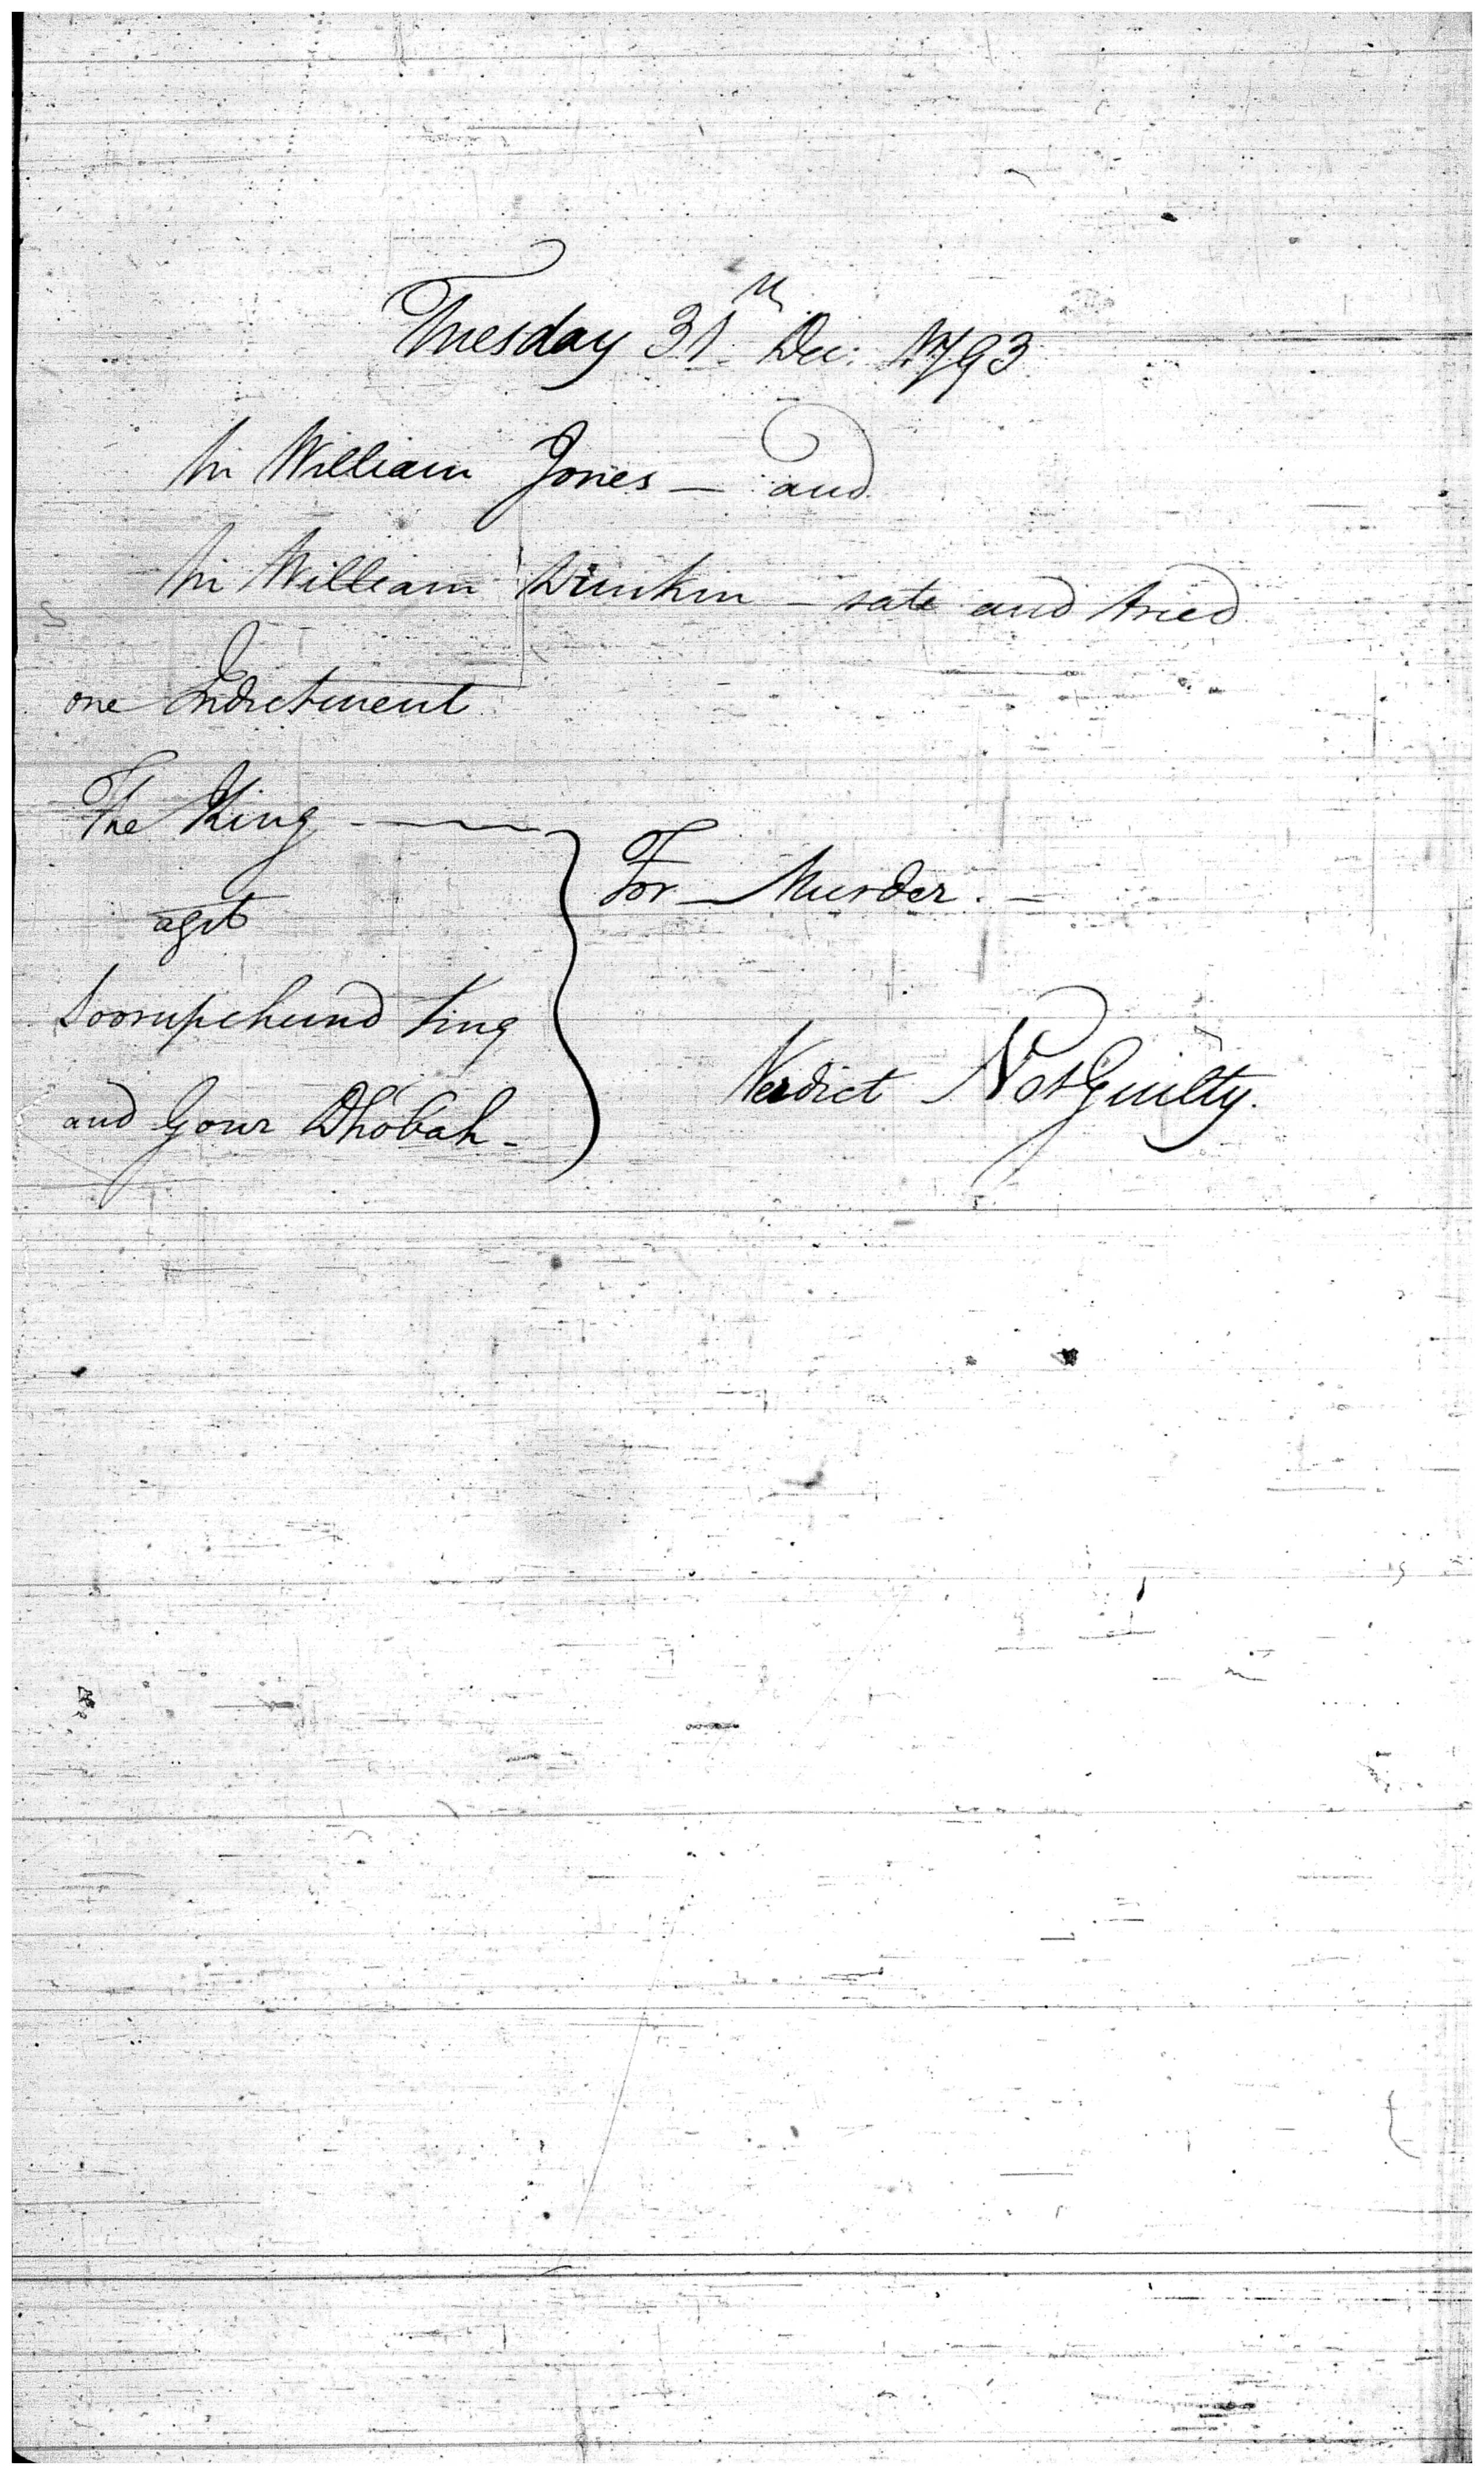 Tuesday 31th Dec: 1793
Sir William Jones — and
Sir William Dunkin — sate and tried
one Indictment
The King —
For Murder. —
agst
Soorupchund Ting
Verdict Not Guilty.
and Gour Dhobah -